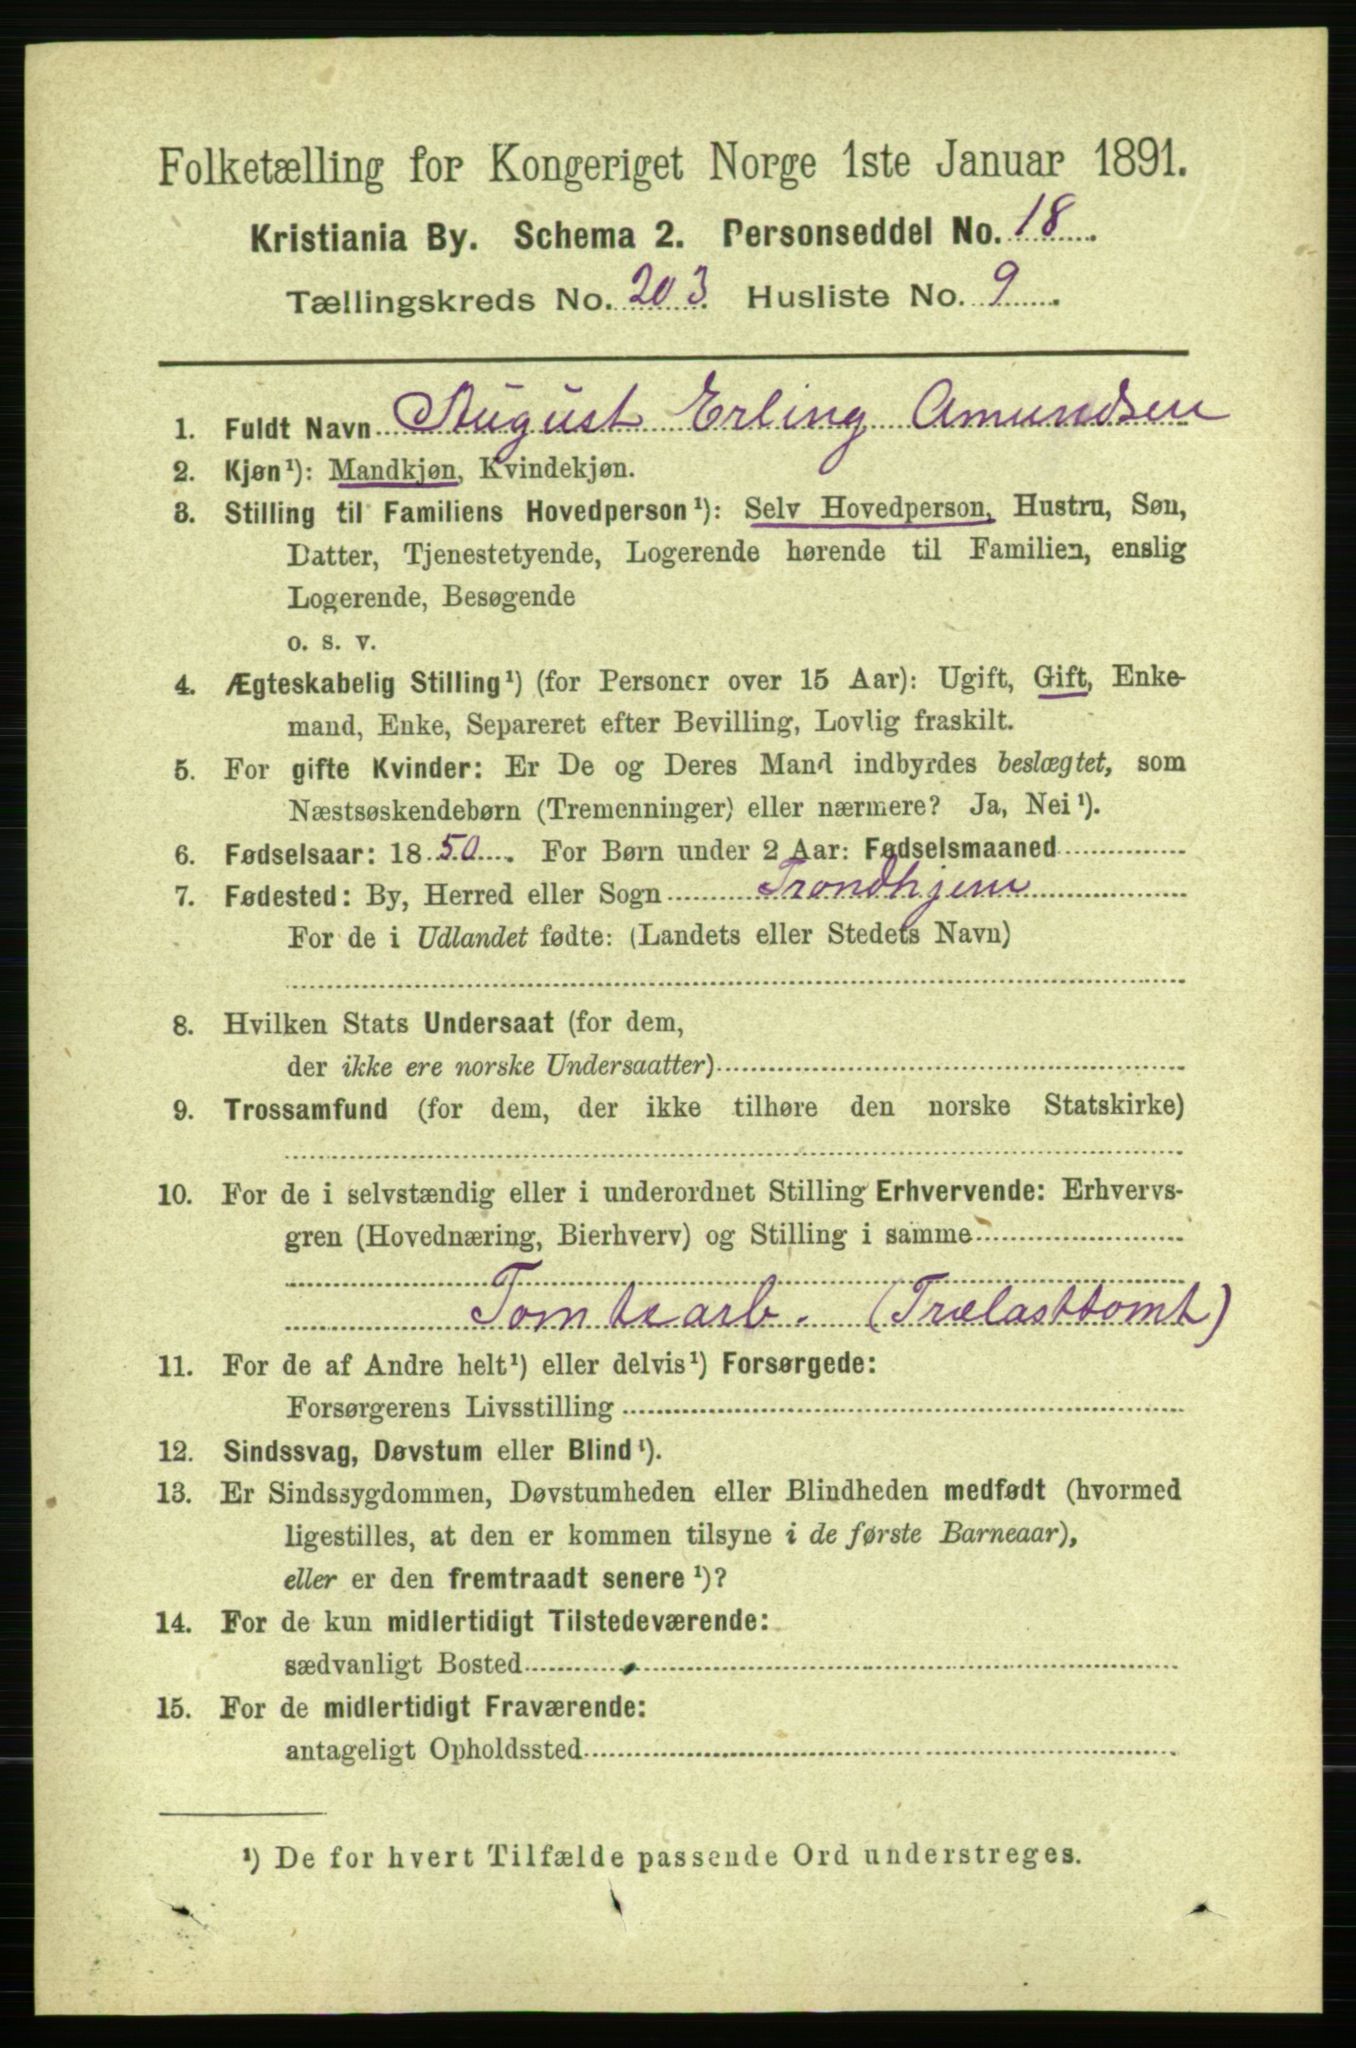 Folketælling for Kongeriget Norge 1ste Januar 1891.
Kristiania By. Schema 2. Personseddel No. 18
Tællingskreds No. 203 Husliste No. 9
1. Fuldt Navn August Erling Amundsen
2. Kjøn¹): Mandkjøn, Kvindekjøn.
3. Stilling til Familiens Hovedperson¹): Selv Hovedperson, Hustru, Søn,
Datter, Tjenestetyende, Logerende hørende til Familien, enslig
Logerende, Besøgende
o. s. v.
4. Ægteskabelig Stilling¹) (for Personer over 15 Aar): Ugift, Gift, Enke-
mand, Enke, Separeret efter Bevilling, Lovlig fraskilt.
5. For gifte Kvinder: Er De og Deres Mand indbyrdes beslægtet, som
Næstsøskendebørn (Tremenninger) eller nærmere? Ja, Nei¹).
6. Fødselsaar: 1850. For Børn under 2 Aar: Fødselsmaaned
7. Fødested: By, Herred eller Sogn Trondhjem
For de i Udlandet fødte: (Landets eller Stedets Navn)
8. Hvilken Stats Undersaat (for dem,
der ikke ere norske Undersaatter)
9. Trossamfund (for dem, der ikke tilhøre den norske Statskirke)
10. For de i selvstændig eller i underordnet Stilling Erhvervende: Erhvervs-
gren (Hovednæring, Bierhverv) og Stilling i samme
Tomtearb. (Trælasttomt)
11. For de af Andre helt¹) eller delvis¹) Forsørgede:
Forsørgerens Livsstilling
12. Sindssvag, Døvstum eller Blind¹).
13. Er Sindssygdommen, Døvstumheden eller Blindheden medfødt (hvormed
ligestilles, at den er kommen tilsyne i de første Barneaar),
eller er den fremtraadt senere¹)?
14. For de kun midlertidigt Tilstedeværende:
sædvanligt Bosted
15. For de midlertidigt Fraværende:
antageligt Opholdssted
¹) De for hvert Tilfælde passende Ord understreges.